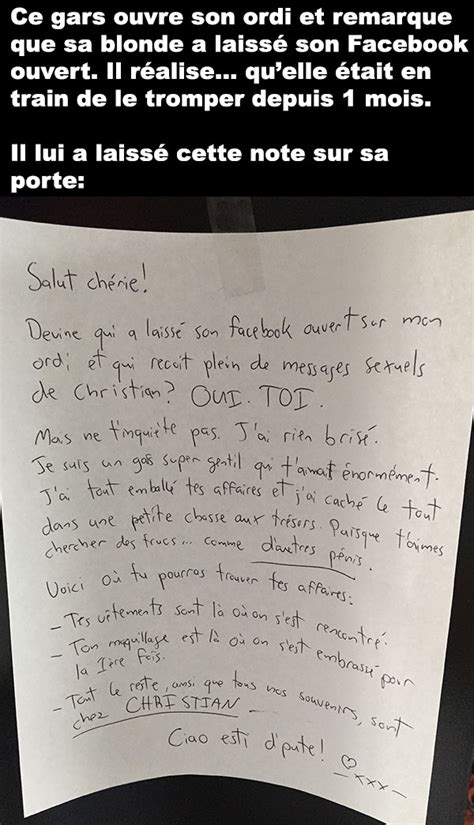 Ce gars ouvre son ordi et remarque
que sa blonde a laissé son Facebook
ouvert. Il réalise... qu'elle était en
train de le tromper depuis 1 mois.
Il lui a laissé cette note sur sa
porte:
Salut chérie!
Devine qui a laissé son facebook ouvert sur mon
ordi et qui recoit plein de messages sexuels
de Christian? OUI. TOI.
Mais ne t'inquiète pas. J'ai rien brisé.
Je suis un gars super gentil qui t'aimait énormément.
J'ai tout emballé tes affaires et j'ai caché le tout
dans une petite chasse aux trésors. Puisque t'aimes
chercher des trucs... comme d'autres pénis.
Voici où tu pourras trouver tes affaires:
- Tes vêtements sont là où on s'est rencontré.
- Ton maquillage est là où on s'est embrassé pour
la 1ère fois.
- Tout le reste, ainsi que tous nos souvenirs, sont
chez CHRISTIAN
Ciao esti d'pute! ♡
-xxx-